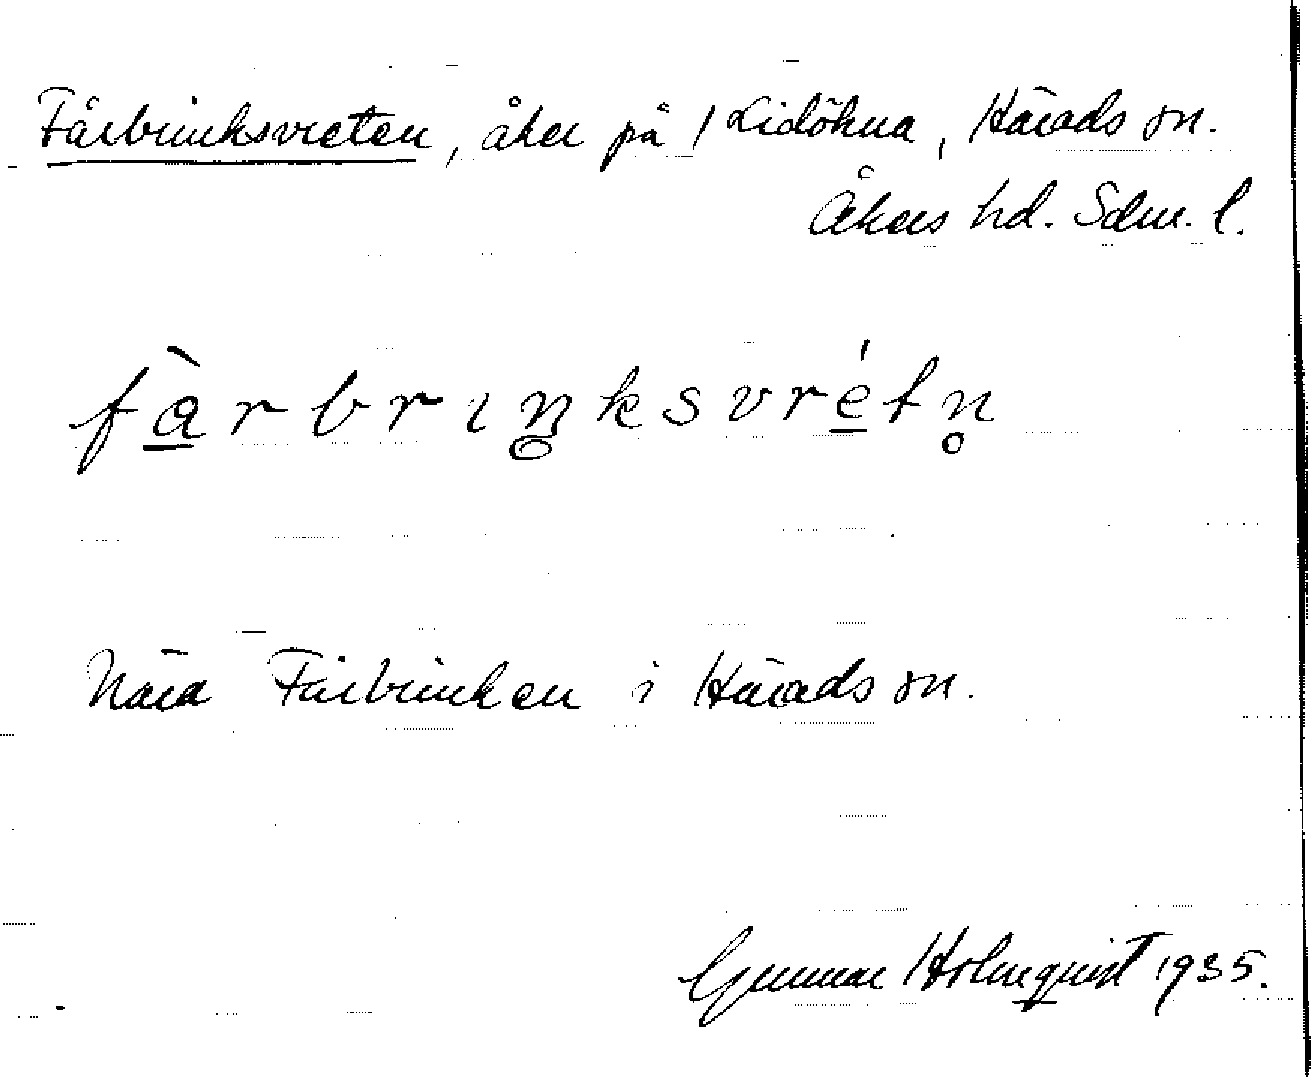 Fårbrinksvreten, åker på Lidökna, Härads sn.
Åkers hd. Sdm. l.
fàrbrıŋksvrétn̥
Nära Fårbrinken i Härads sn.
Gunnar Holmquist 1935.